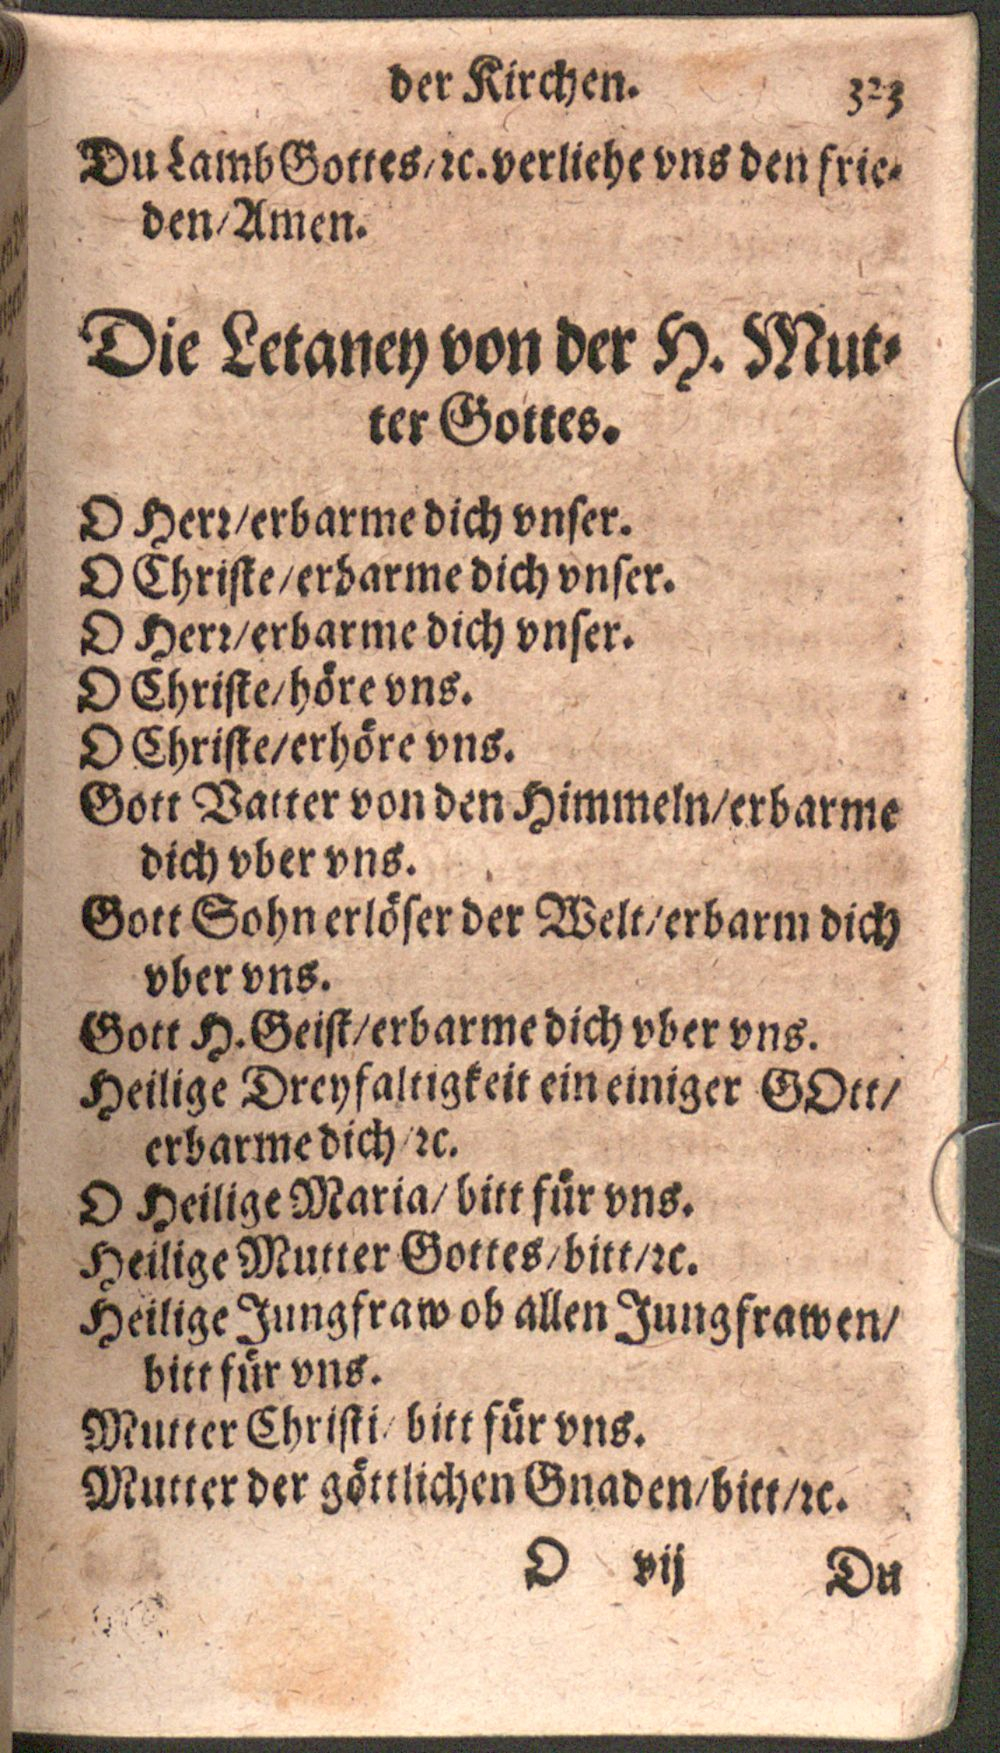 der Kirchen. 323
Du Lamb Gottes/ ꝛc. verliehe vns den frie-
den/ Amen.
Die Letaney von der H. Mut-
ter Gottes.
O Herꝛ/ erbarme dich vnser.
O Christe/ erbarme dich vnser.
O Herꝛ/ erbarme dich vnser.
O Christe/ höre vns.
O Christe/ erhöre vns.
Gott Vatter von den Himmeln/ erbarme
dich vber vns.
Gott Sohn erlöser der Welt/ erbarm dich
vber vns.
Gott H. Geist/ erbarme dich vber vns.
Heilige Dreyfaltigkeit ein einiger GOtt/
erbarme dich/ ꝛc.
O Heilige Maria/ bitt für vns.
Heilige Mutter Gottes/ bitt/ ꝛc.
Heilige Jungfraw ob allen Jungfrawen/
bitt für vns.
Mutter Christi/ bitt für vns.
Mutter der göttlichen Gnaden/ bitt/ ꝛc.
O vij Du